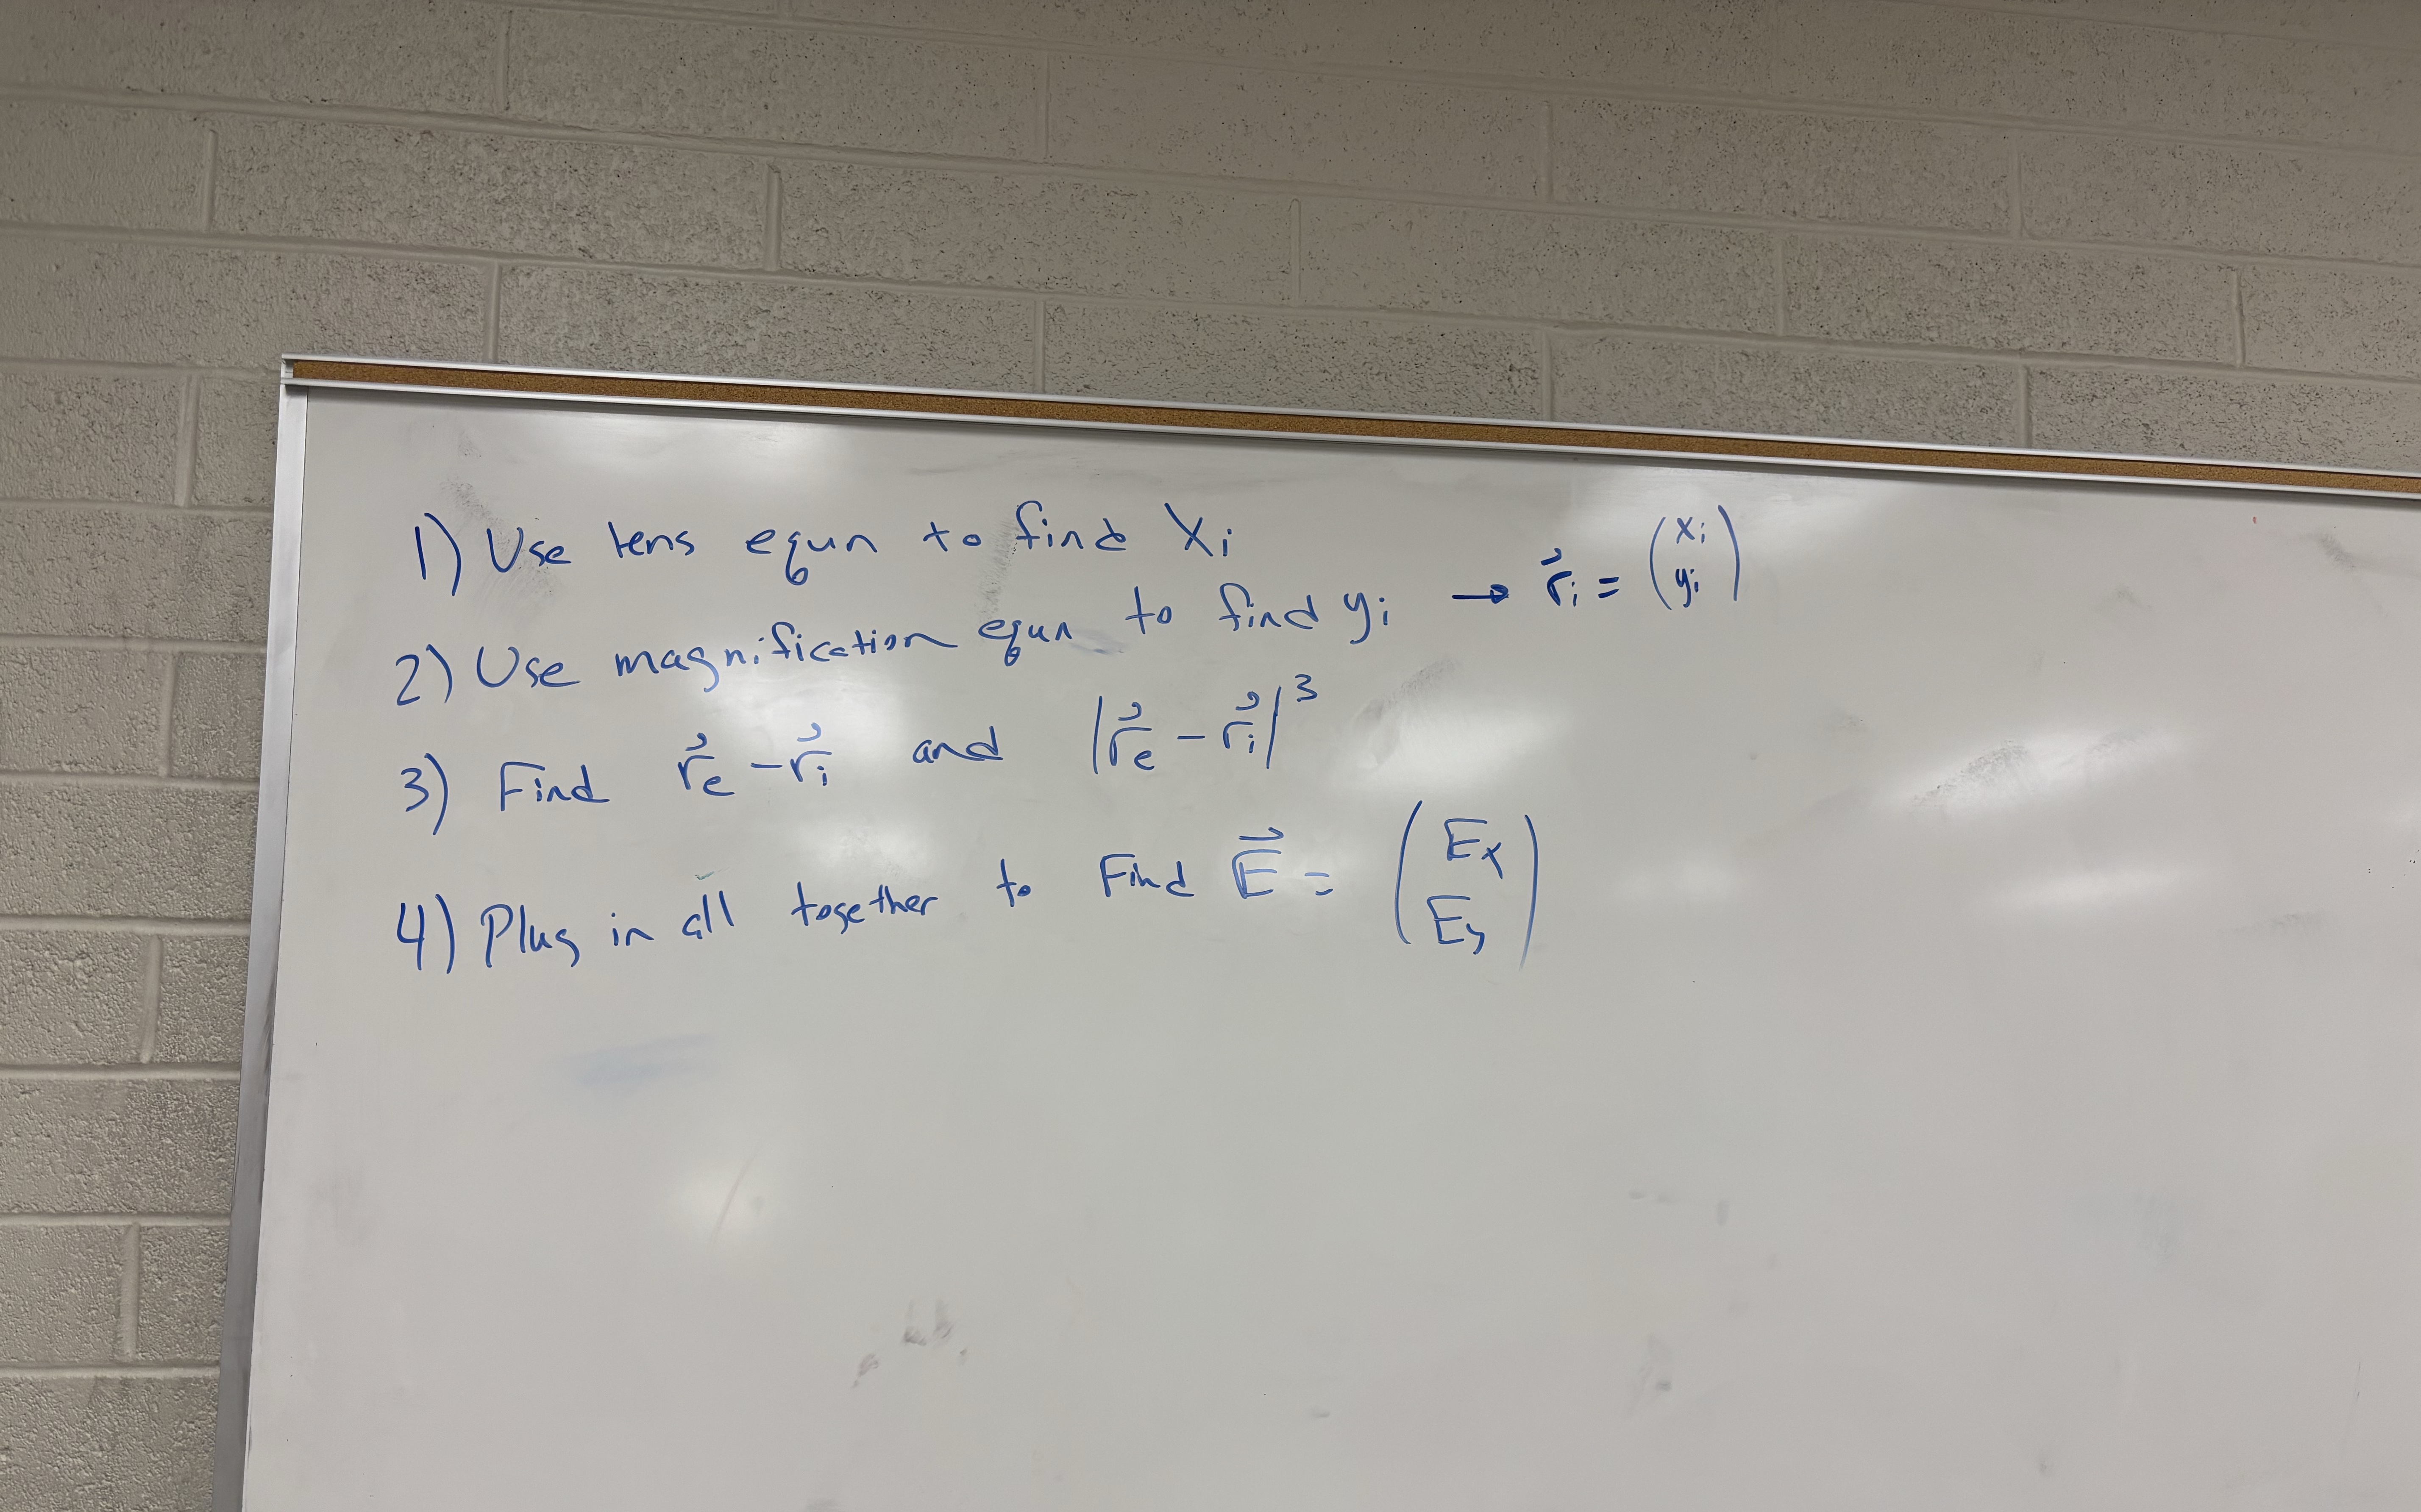 1) Use lens equn to find Xi
2) Use magnification equn to find yi → r⃗i = (xi yi)
3) Find r⃗e - r⃗i and |r⃗e - r⃗i|³
4) Plug in all together to Find E⃗ = (Ex Ey)